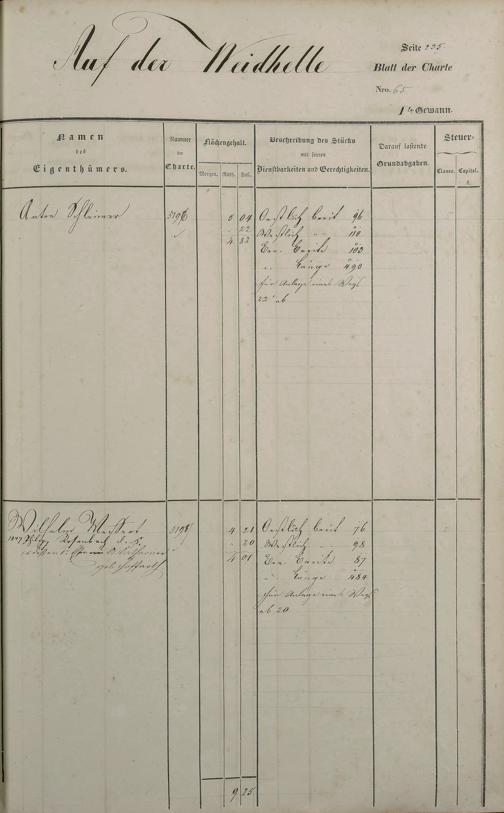 Auf der Weidhelle
Seite 235
Blatt der Charte
Nro. 65
1te Gewann.
Namen
des
Eigenthümers.
Nummer
der
Charte.
Flächengehalt.
Morgen. Ruth. Sch.
Beschreibung des Stücks
mit seinen
Dienstbarkeiten und Gerechtigkeiten.
Darauf lastende
Grundabgaben.
Steuer-
Classe. Capital.
fl.
Anton Schleimer 3196 5 04 Oestlich breit 96
22 Westlich " 110
4 82 Cor. Breite 103
" Länge 490
für Anlage eines Wegs
22 ab
Wilhelm 3198 4 21 Oestlich breit 76
1847 Philipp d. s.
20 Westlich " 98
4 01 Cor. Breite 87
" Länge 484
für Anlage eines Wegs
ab 20
9 25